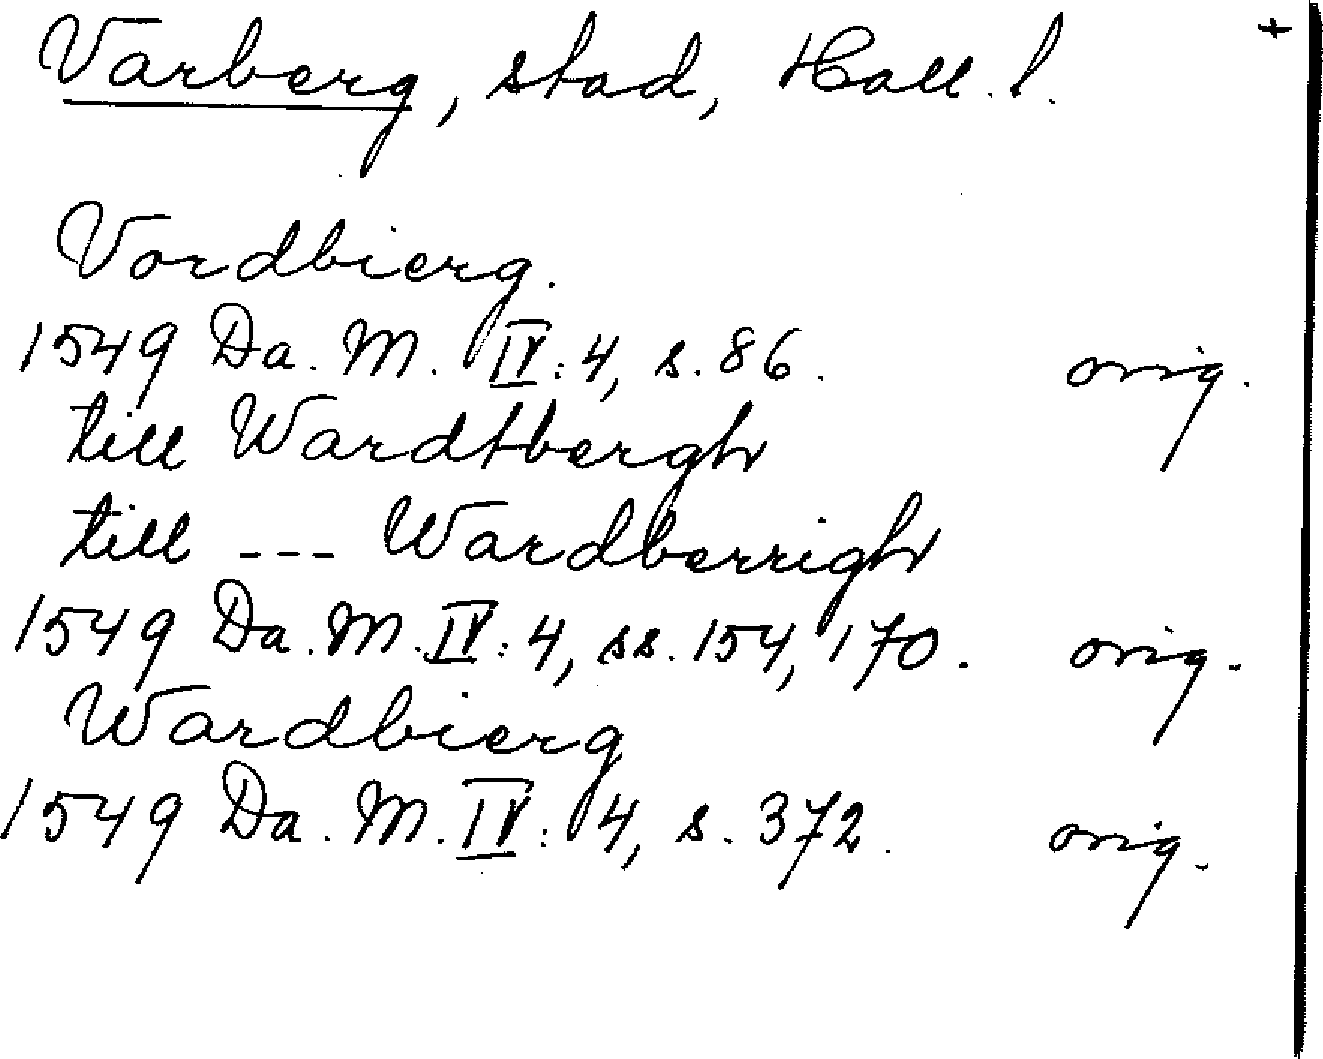 Varberg, stad, Hall. l. +
Vordbierg.
1549 Da. M. IV: 4, s. 86. orig.
till Wardtbergh
till --- Wardberrigh
1549 Da. M. IV: 4, ss. 154, 170. orig.
Wardbierg
1549 Da. M. IV: 4, s. 372. orig.